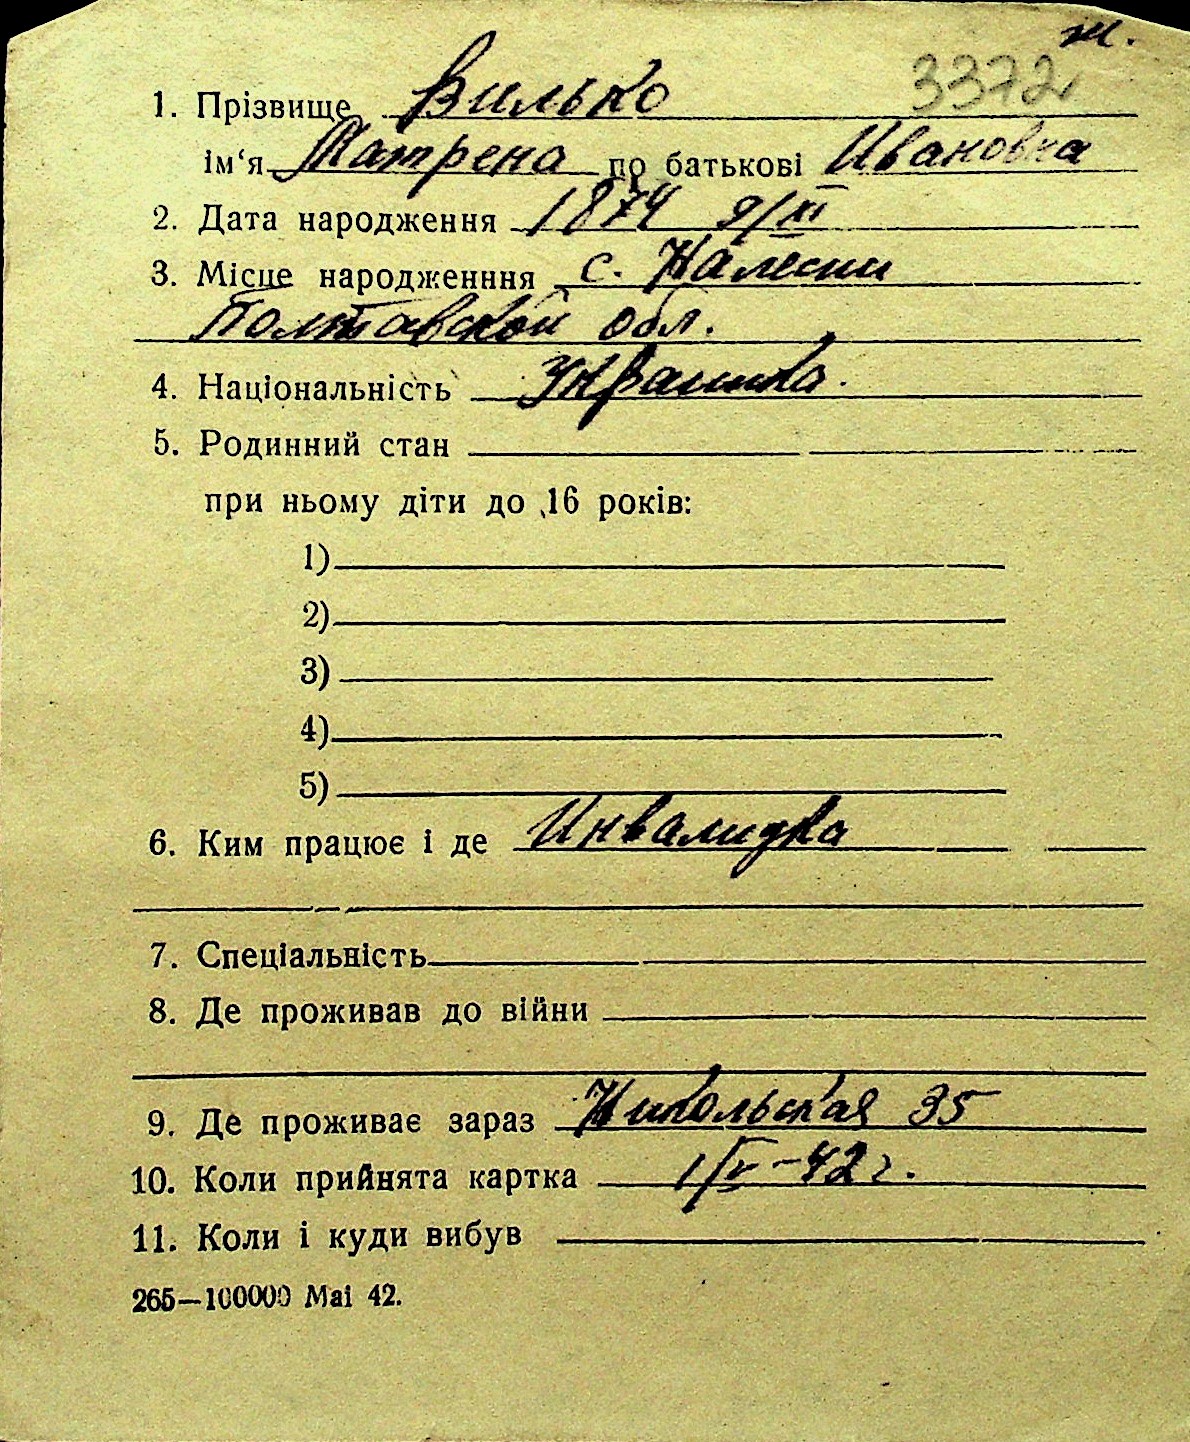 ж.
3372
1. Прізвище Вилько
ім‘я Матрена по батькові Ивановна
2. Дата народження 1874 9/XI
3. Місце народженння с.
Полтавской обл.
4. Національність Украинка.
5. Родинний стан
при ньому діти до 16 років:
1)
2)
3)
4)
5)
6. Ким працює і де Инвалидка
7. Спеціальність
8. Де проживав до війни
9. Де проживає зараз Никольская 35
10. Коли прийнята картка 1/V-42 г.
11. Коли і куди вибув
265—100000 Маі 42.